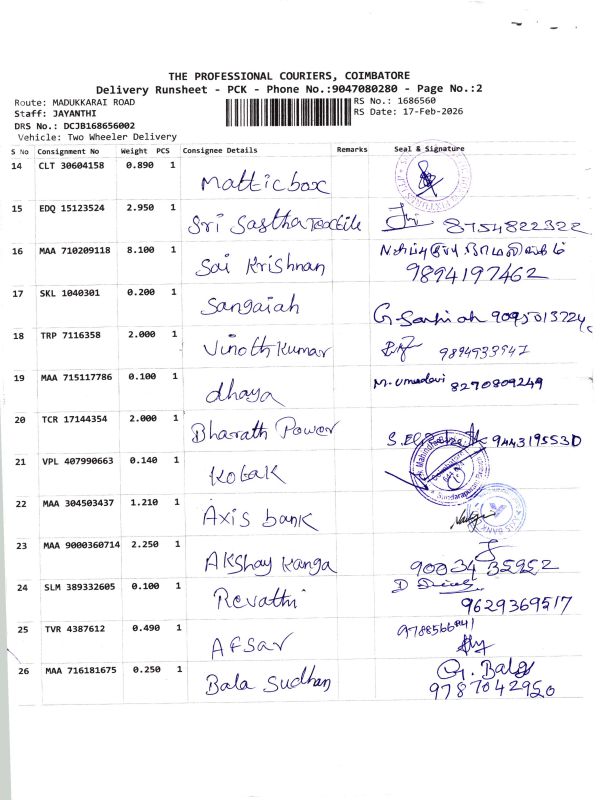 THE PROFESSIONAL COURIERS, COIMBATORE
Delivery Runsheet - PCK - Phone No.:9047080280 - Page No.:2
Route: MADUKKARAI ROAD
Staff: JAYANTHI
DRS No.: DCJB168656002
Vehicle: Two Wheeler Delivery
RS No.: 1686560
RS Date: 17-Feb-2026
S No Consignment No Weight PCS Consignee Details Remarks Seal & Signature
14 CLT 30604158 0.890 1 Matticbox
15 EDQ 15123524 2.950 1 Sri Sastha Textile 8754822322
16 MAA 710209118 8.100 1 Sai Krishnan 9894197462
17 SKL 1040301 0.200 1 Sangaiah
18 TRP 7116358 2.000 1 Vinoth Kumar 9894933947
19 MAA 715117786 0.100 1 dhaya M. Umadevi 8270809249
20 TCR 17144354 2.000 1 Bharath Power 9443195530
21 VPL 407990663 0.140 1 Kotak
22 MAA 304503437 1.210 1 Axis bank
23 MAA 9000360714 2.250 1 Akshay Kanga 90034 35952
24 SLM 389332605 0.100 1 Revathi 9629369517
25 TVR 4387612 0.490 1 Afsar 9788566841
26 MAA 716181675 0.250 1 Bala Sudhan G. Bala 9787042950